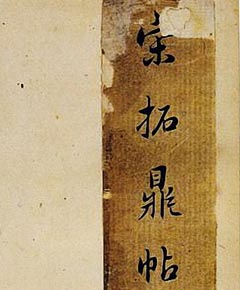 宋拓鼎帖